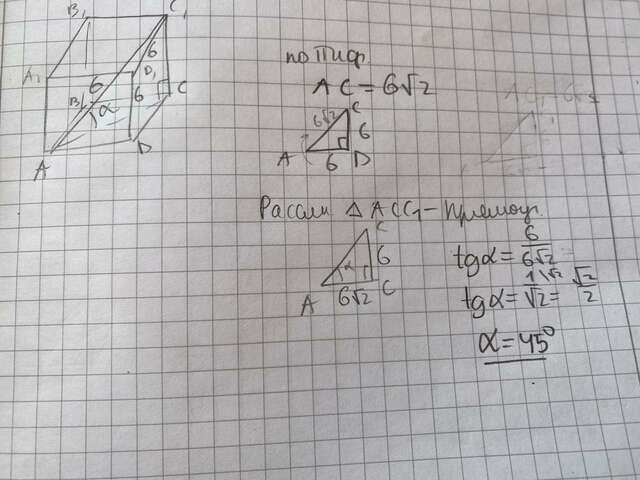 B₁ C₁
A₁ 6 D₁ 6
B 6 C
α
A D
по Пиф.
AC = 6√2
6√2 C
6
A 6 D
Рассм △ ACC₁ - прямоуг.
C
α 6
A 6√2 C
tgα = 6/6√2
tgα = 1\√2/√2 = √2/2
α = 45°